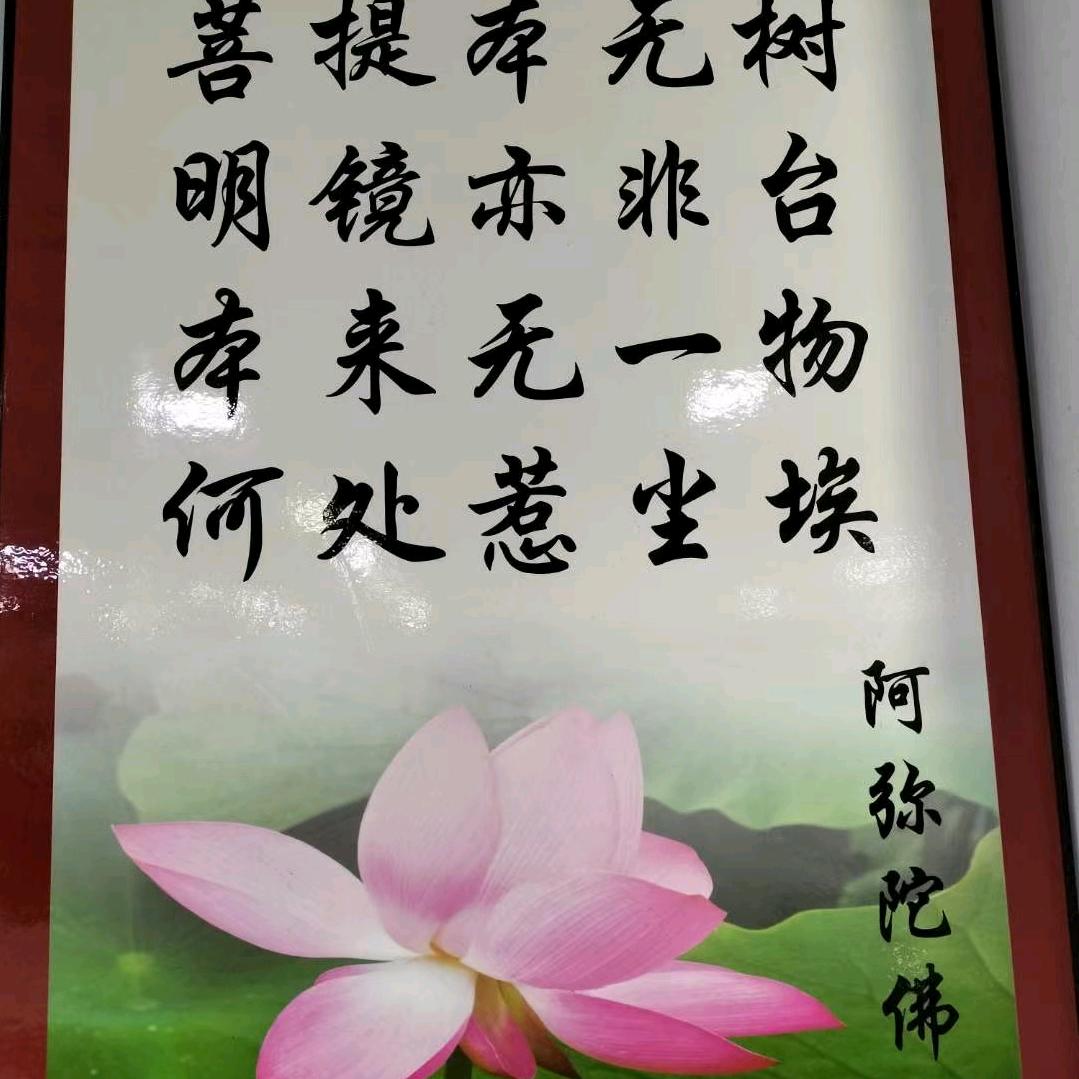 菩提本无树
明镜亦非台
本来无一物
何处惹尘埃
阿弥陀佛